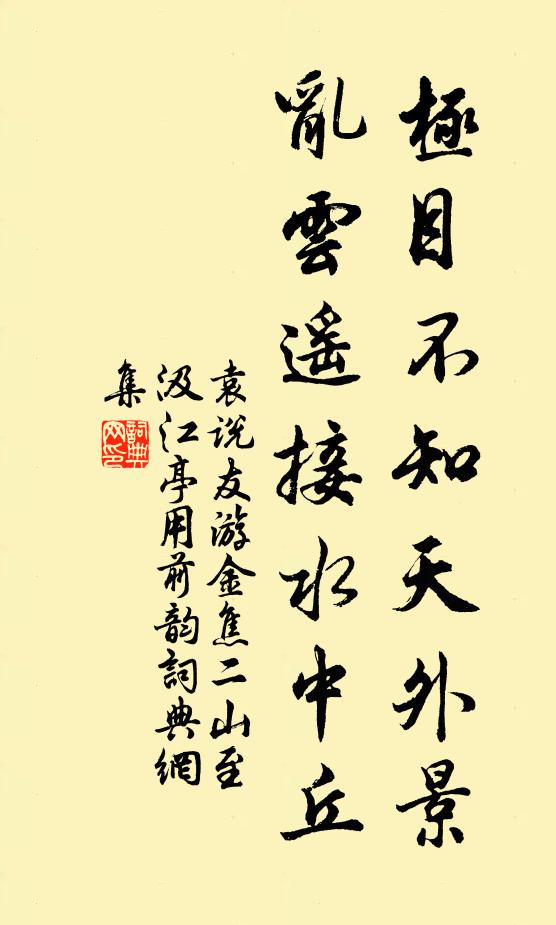 極目不知天外景
亂雲遥接水中丘
袁说友游金焦二山至
汲江亭用前韵詞典網
集
詞典
网印